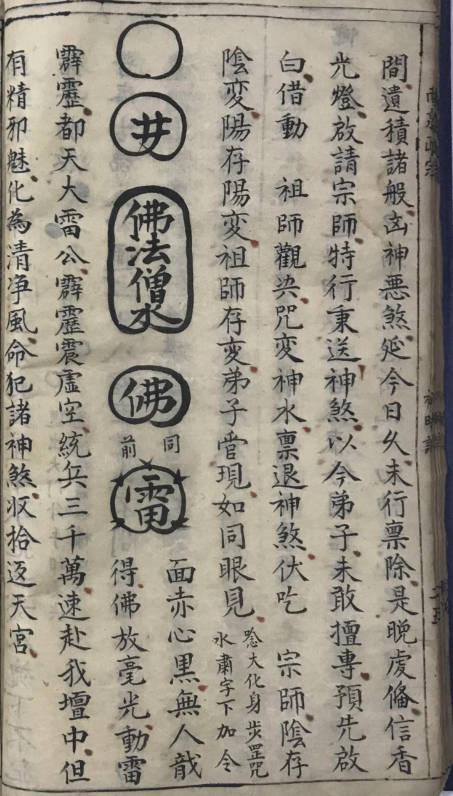 間遺積諸般凶神悪煞延今日久未行禀除是晚虔俻信香
光燈啟請宗師特行東送神煞以今弟子未敢擅專預先啟
白借動 祖師觀㳟咒変神水禀退神煞伏吃 宗師陰存
陰変陽存陽変祖師存変弟子嘗現如同眼見
念大化身步罡咒
水肅字下加令
井
佛法僧水
佛
同
前
雷
面赤心黑無人哉
得佛放毫光動雷
霹靂都天大雷公霹靂震虚空統兵三千萬速赴我壇中但
有精邪魅化為清净風命犯諸神煞収拾返天宮